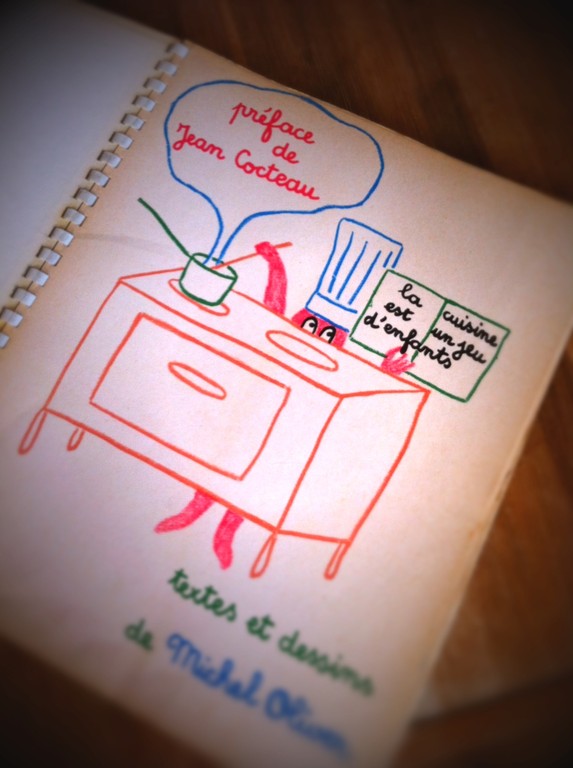 préface
de
Jean Cocteau
la cuisine
est un jeu
d'enfants
textes et dessins
de Michel Oliver